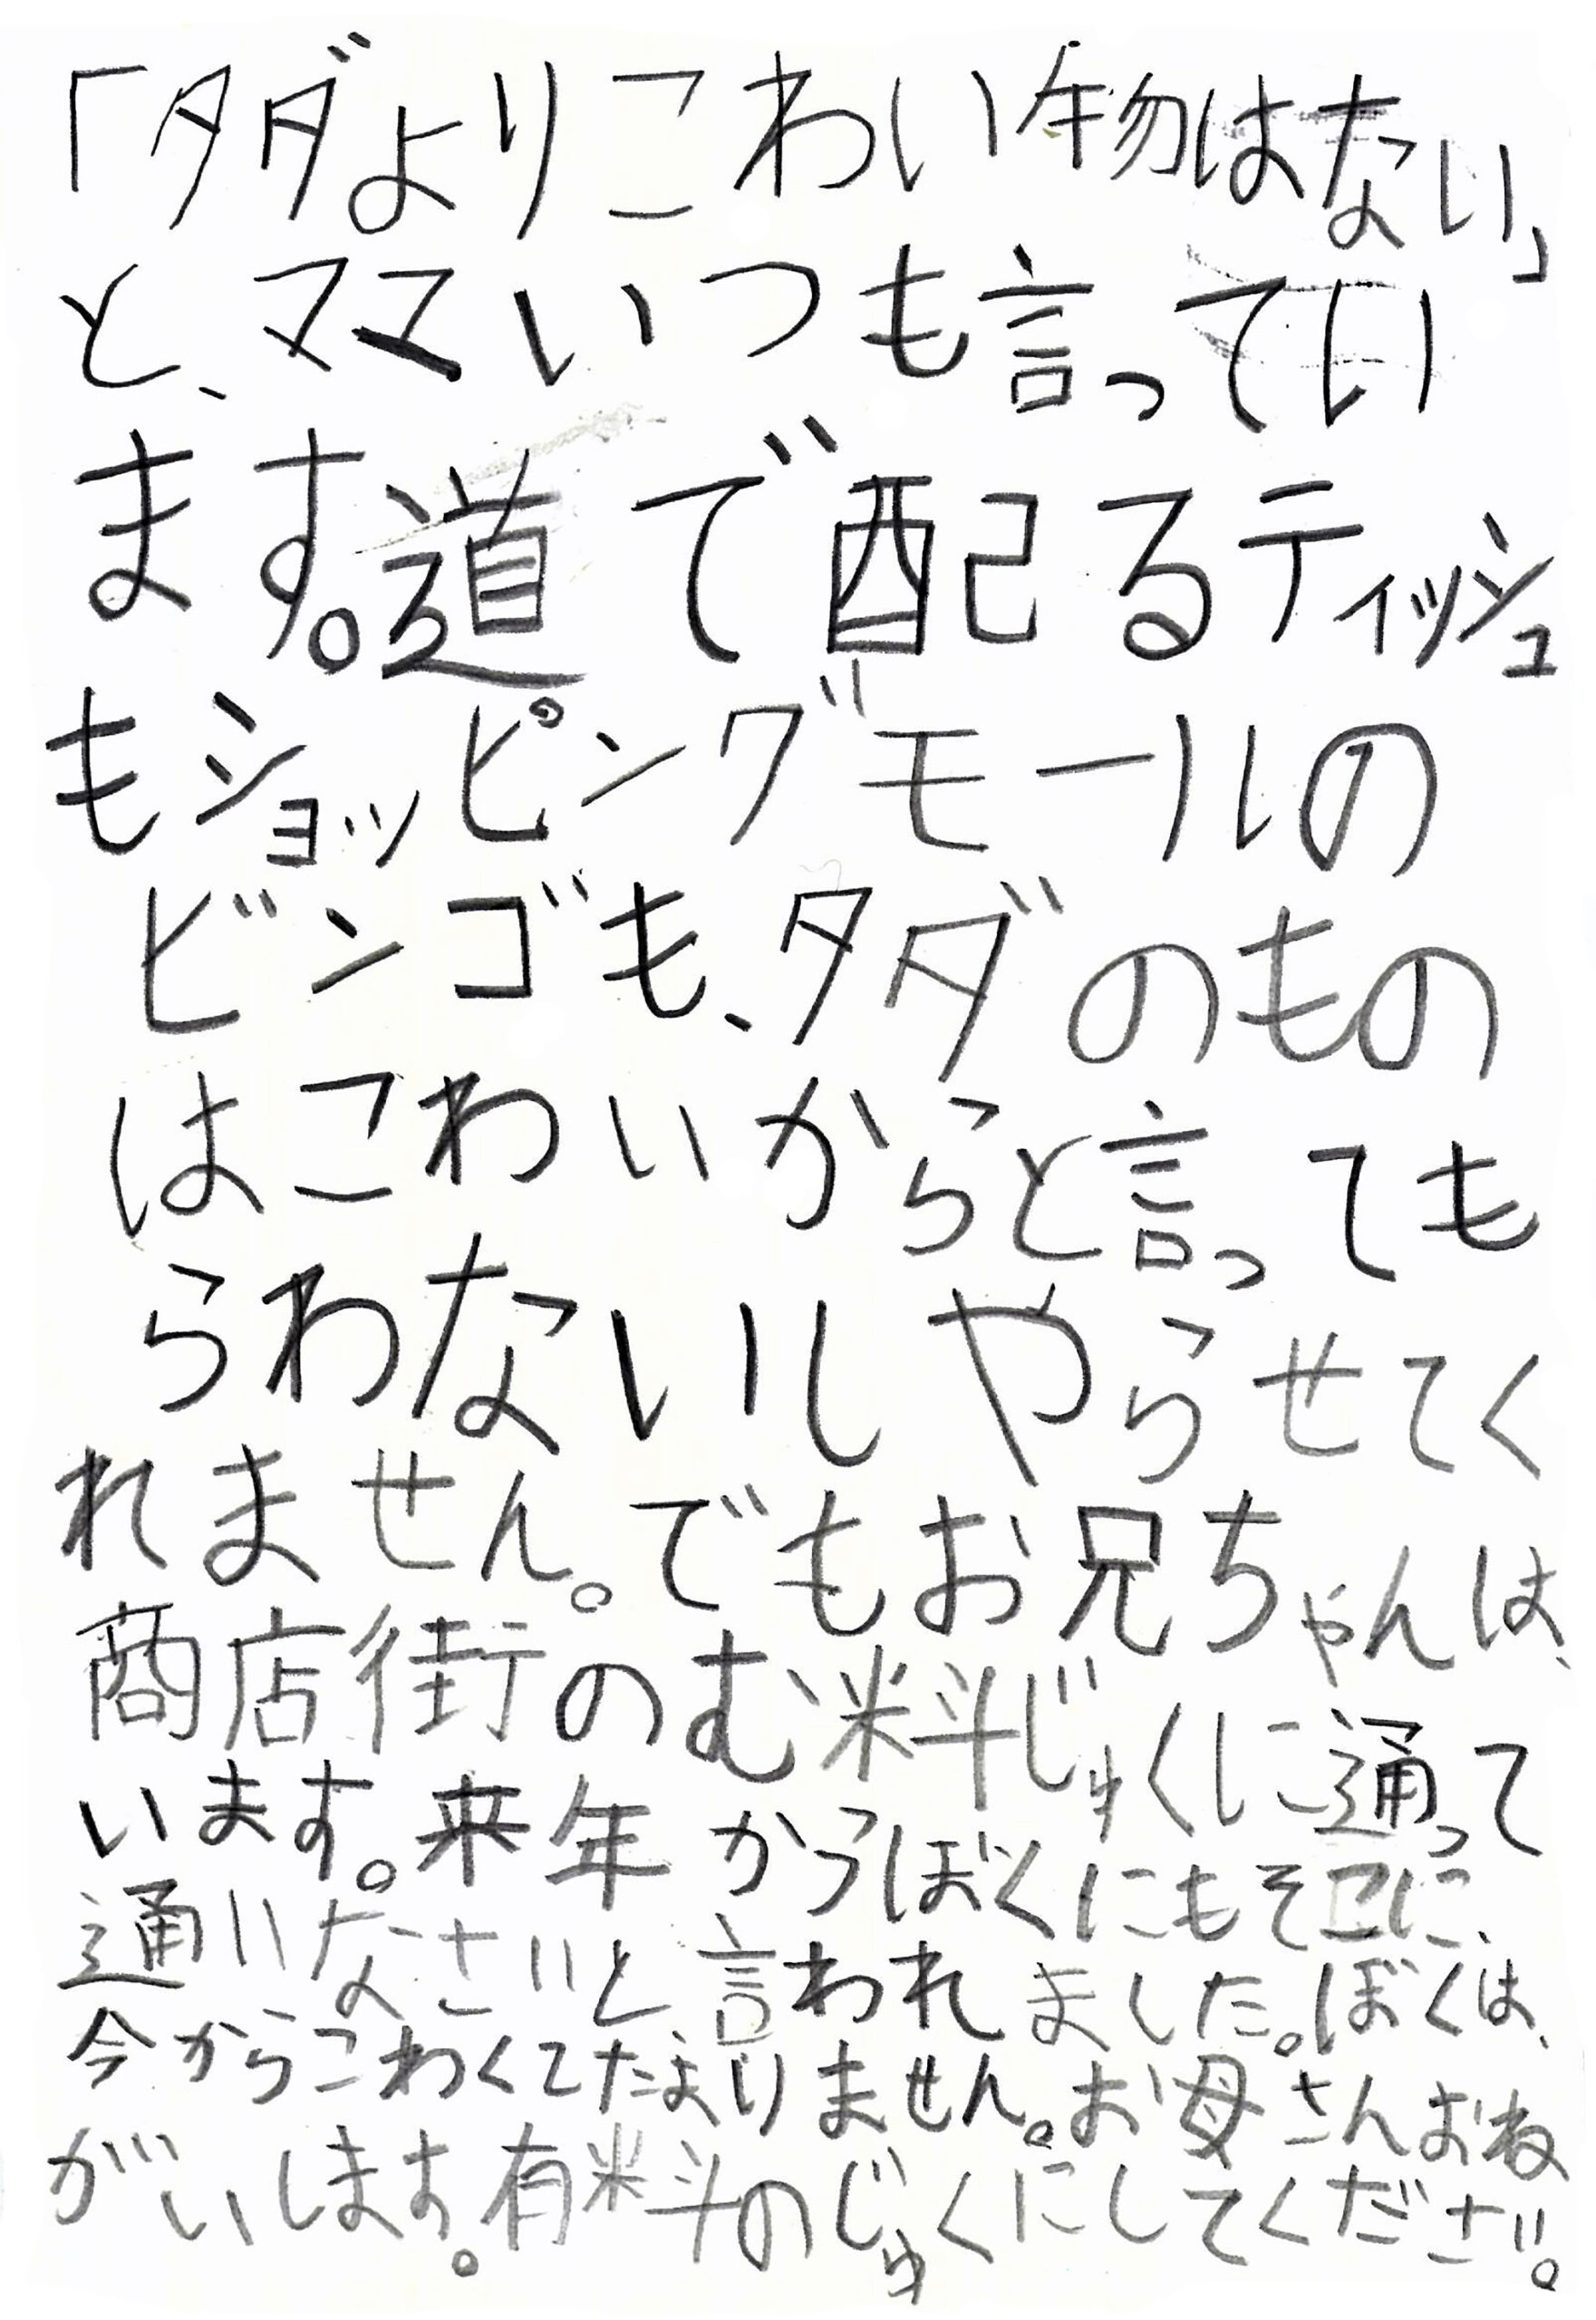 「タダよりこわい物はない」
と、ママいつも言ってい
ます。道で配るティッシュ
もショッピングモールの
ビンゴも、タダのもの
はこわいからと言っても
らわないしやらせてく
れません。でもお兄ちゃんは、
商店街のむ料じゅくに通って
います。来年からぼくにもそこに、
通いなさいと言われました。ぼくは、
今からこわくてたまりません。お母さんおね
がいします。有料のじゅくにしてください。